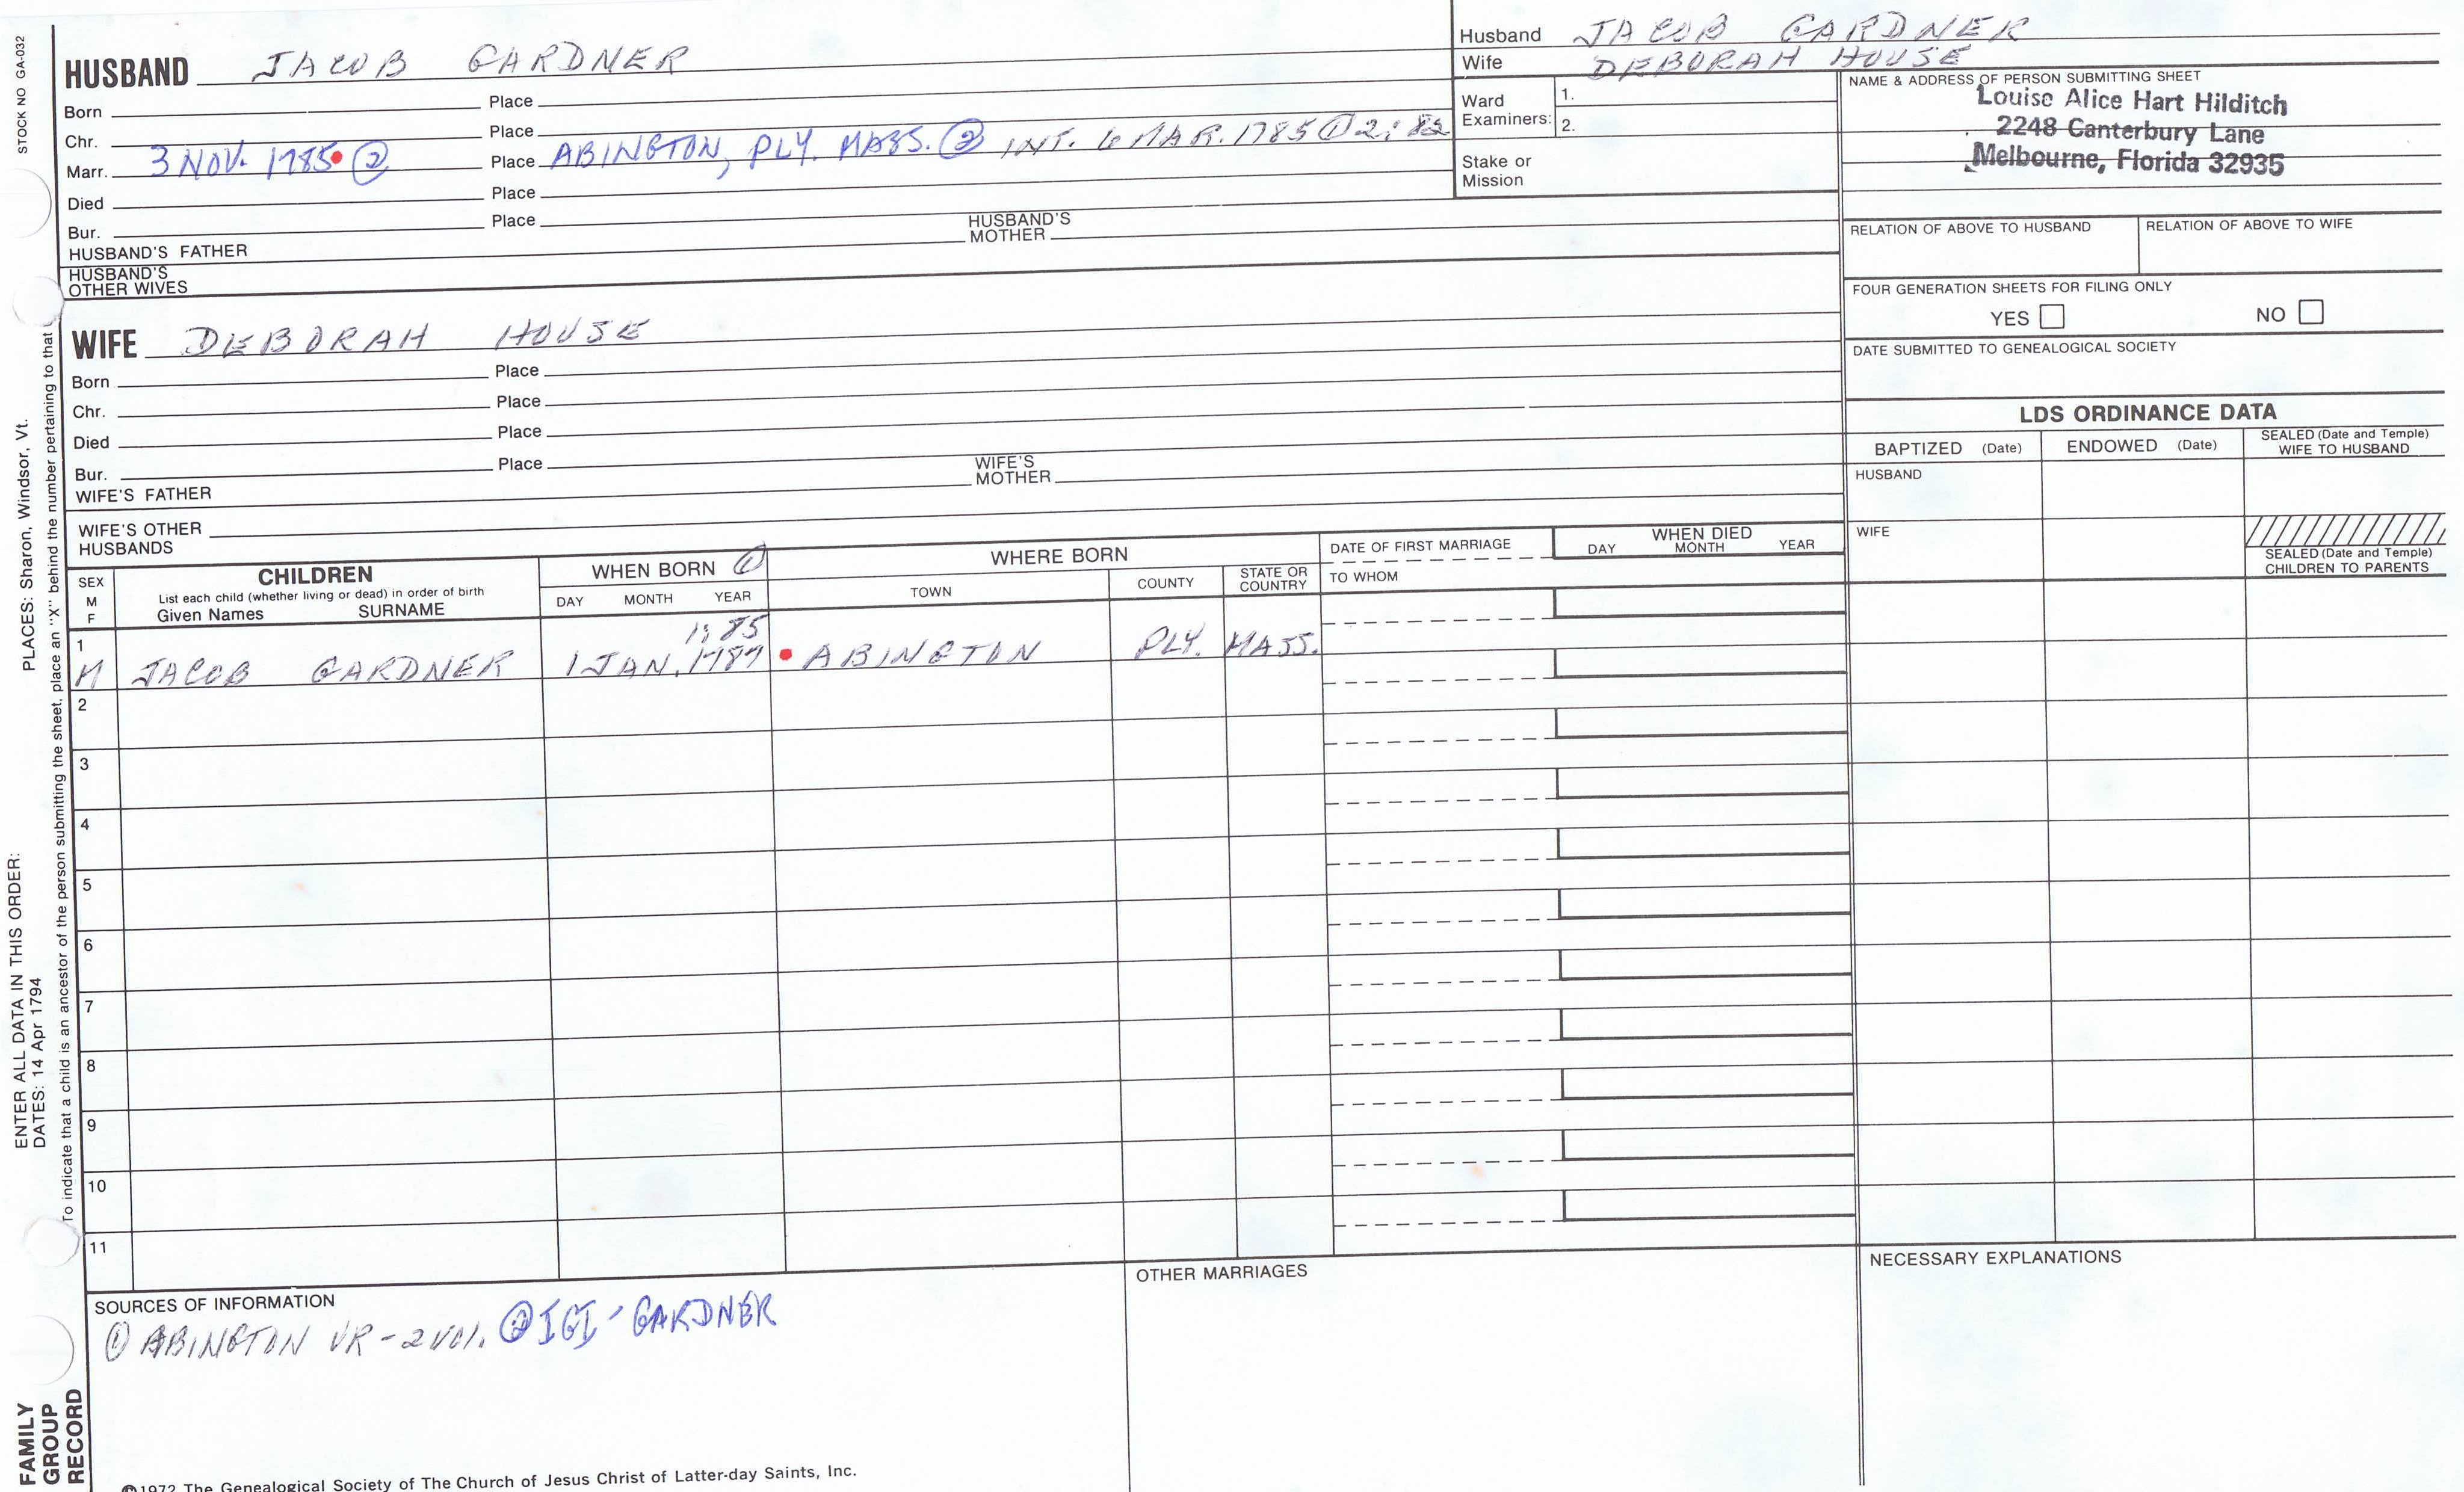 STOCK NO GA-032
HUSBAND JACOB GARDNER
Born Place
Chr. Place
Marr. 3 NOV. 1785 ② Place ABINGTON, PLY. MASS. ② INT. 6 MAR. 1785 ① 2:82
Died Place
Bur. Place
HUSBAND'S FATHER HUSBAND'S MOTHER
HUSBAND'S OTHER WIVES
Husband JACOB GARDNER
Wife DEBORAH HOUSE
Ward Examiners: 1.
2.
Stake or Mission
NAME & ADDRESS OF PERSON SUBMITTING SHEET
Louise Alice Hart Hilditch
2248 Canterbury Lane
Melbourne, Florida 32935
RELATION OF ABOVE TO HUSBAND RELATION OF ABOVE TO WIFE
FOUR GENERATION SHEETS FOR FILING ONLY
YES NO
DATE SUBMITTED TO GENEALOGICAL SOCIETY
WIFE DEBORAH HOUSE
Born Place
Chr. Place
Died Place
Bur. Place
WIFE'S FATHER WIFE'S MOTHER
WIFE'S OTHER HUSBANDS
LDS ORDINANCE DATA
BAPTIZED (Date) ENDOWED (Date) SEALED (Date and Temple) WIFE TO HUSBAND
HUSBAND
WIFE
SEALED (Date and Temple) CHILDREN TO PARENTS
SEX M F
CHILDREN
List each child (whether living or dead) in order of birth
Given Names SURNAME
WHEN BORN ①
DAY MONTH YEAR
WHERE BORN
TOWN COUNTY STATE OR COUNTRY
DATE OF FIRST MARRIAGE
TO WHOM
WHEN DIED
DAY MONTH YEAR
1:85
1 M JACOB GARDNER 1 JAN. 1787 ABINGTON PLY. MASS.
2
3
4
5
6
7
8
9
10
11
SOURCES OF INFORMATION
① ABINGTON VR-2 VOL. ② IGI - GARDNER
OTHER MARRIAGES
NECESSARY EXPLANATIONS
©1972 The Genealogical Society of The Church of Jesus Christ of Latter-day Saints, Inc.
ENTER ALL DATA IN THIS ORDER:
DATES: 14 Apr 1794
PLACES: Sharon, Windsor, Vt.
To indicate that a child is an ancestor of the person submitting the sheet, place an "X" behind the number pertaining to that
FAMILY
GROUP
RECORD